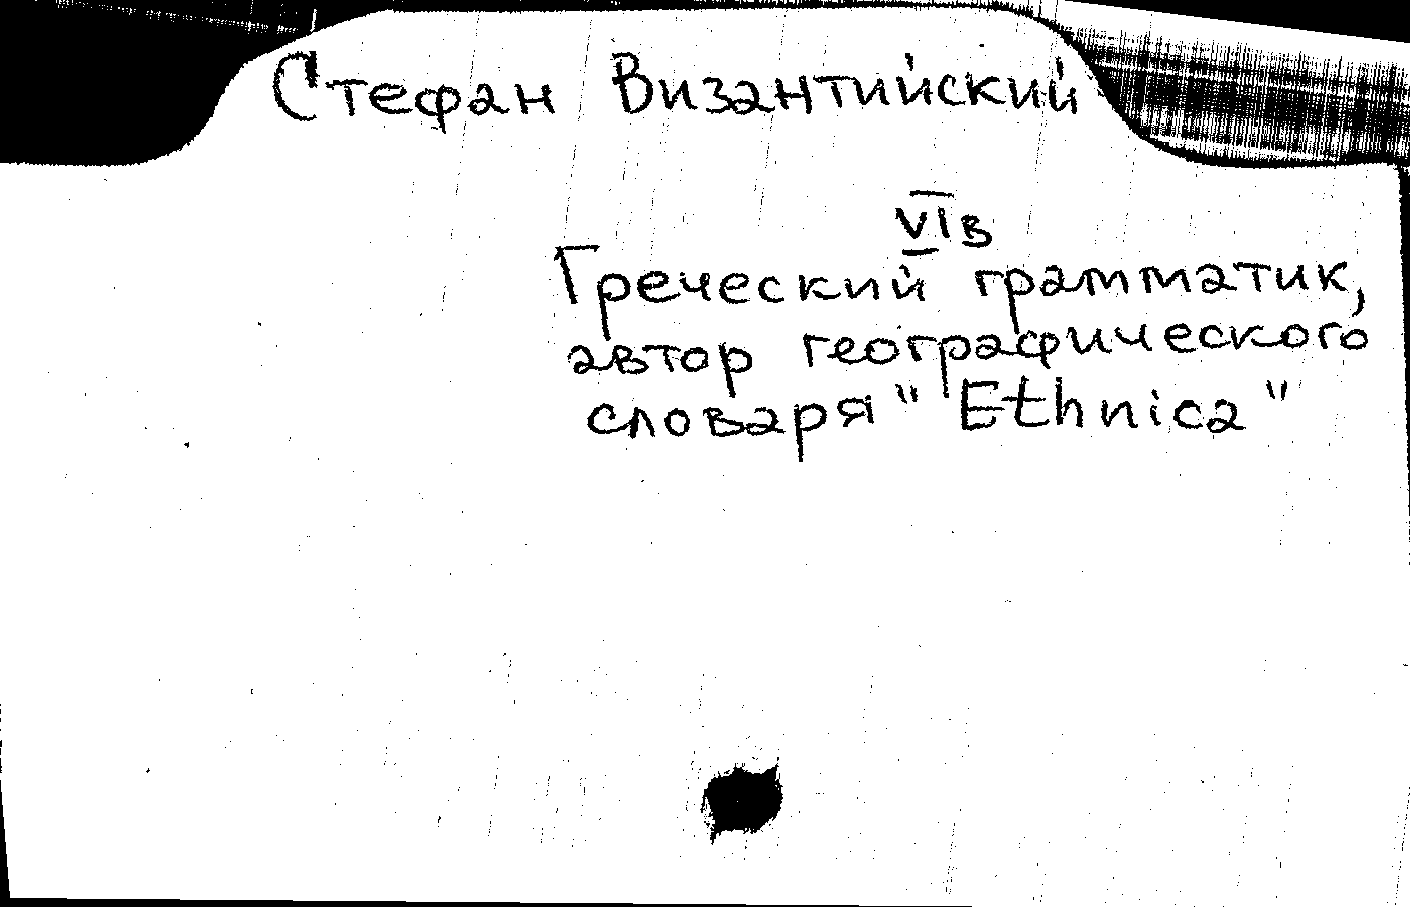 Стефан Византийский
VIв
Греческий грамматик,
автор географического
словаря "Ethnica"